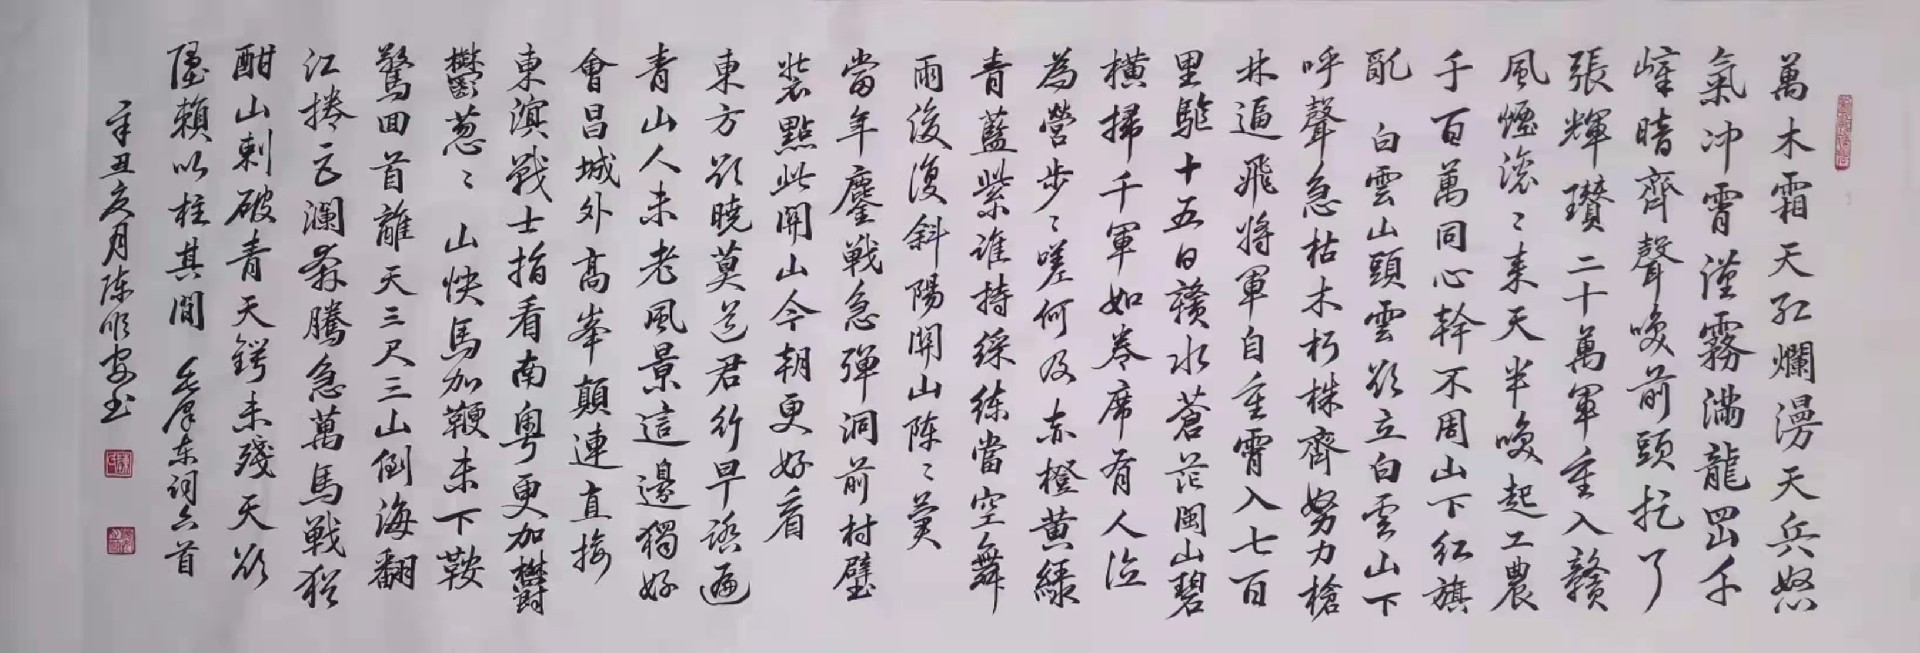 萬木霜天紅爛漫天兵怒
氣冲霄漢霧滿龍岡千
嶂暗齊聲喚前頭捉了
張輝瓚二十萬軍重入贛
風煙滾〻來天半喚起工農
千百萬同心幹不周山下紅旗
亂 白雲山頭雲欲立白雲山下
呼聲急枯木朽株齊努力槍
林逼飛將軍自重霄入七百
里驅十五日贛水蒼茫閩山碧
橫掃千軍如卷席有人泣
為營步〻嗟何及赤橙黃綠
青藍紫誰持綵練當空舞
雨後復斜陽關山陣〻蒼
當年鏖戰急彈洞前村壁
裝點此關山今朝更好看
東方欲曉莫道君行早踏遍
青山人未老風景這邊獨好
會昌城外高峯顛連直接
東溟戰士指看南粵更加鬱
鬱葱〻山快馬加鞭未下鞍
驚回首離天三尺三山倒海翻
江捲巨瀾奔騰急萬馬戰猶
酣山刺破青天鍔未殘天欲
墮賴以柱其間 毛澤東詞六首
辛丑亥月陳順安書